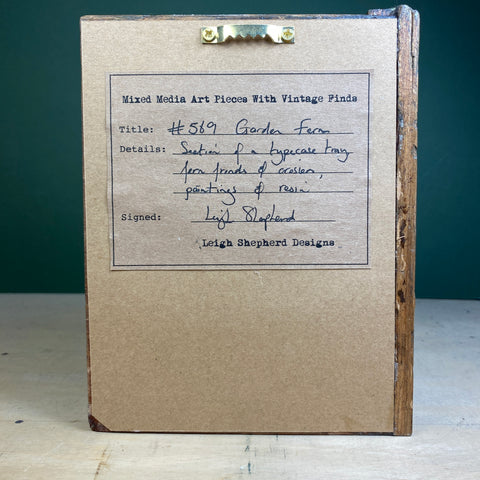 Mixed Media Art Pieces With Vintage Finds
Title: #569 Garden Fern
Details: Section of a typecase tray
fern fronds of
paintings of resin
Signed: Leigh Shepherd
Leigh Shepherd Designs